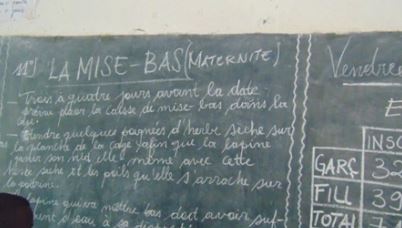 11°) LA MISE-BAS (MATERNITÉ)
- Trois à quatre jours avant la date
placer la caisse de mise-bas dans la
- Étendre quelques poignées d'herbe sèche sur
la planche de la cage afin que la lapine
garnir son nid elle même avec cette
herbe sèche et les poils qu'elle s'arrache sur
la poitrine.
lapine qui va mettre bas doit avoir suf-
d'eau à sa
Vendre
E
INSC
GARÇ 32
FILL 39
TOTAL 7